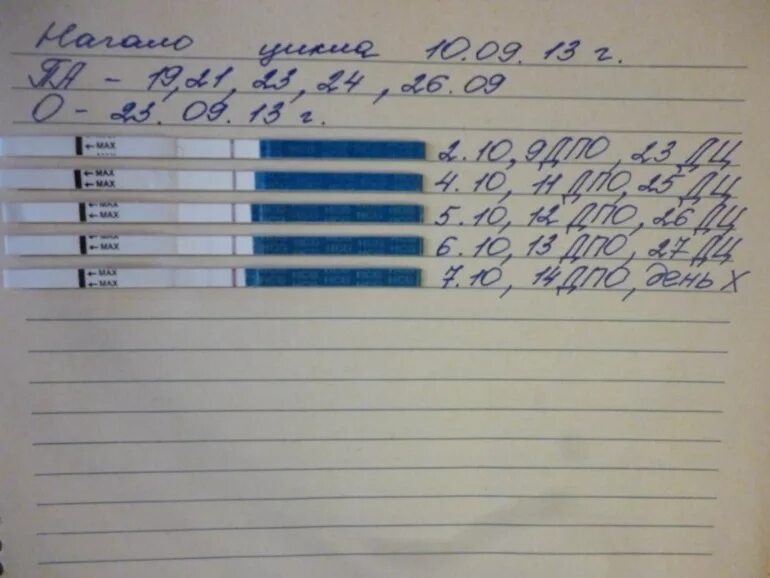 Начало цикла 10.09.13 г.
ПА - 19, 21, 23, 24, 26.09
О - 23.09.13 г.
←MAX 2.10, 9ДПО, 23 ДЦ
←MAX
←MAX HCG 4.10, 11 ДПО, 25 ДЦ
←MAX
←MAX HCG 5.10, 12 ДПО, 26 ДЦ
←MAX
←MAX HCG 6.10, 13 ДПО, 27 ДЦ
←MAX
←MAX HCG 7.10, 14 ДПО, день Х